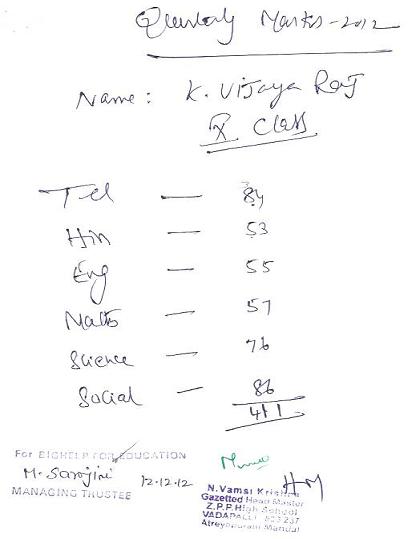 Quarterly Marks - 2012
Name : K. Vijaya Raj
Class
Tel — 84
Hin — 53
Eng — 55
Maths — 57
Science — 76
Social — 86
411
For BIGHELP FOR EDUCATION
M. Sarojini 12.12.12
MANAGING TRUSTEE
HM
N.Vamsi Krishna
Gazetted Head Master
Z.P.P.High School
VADAPALLI 533 237
Atreyapuram Mandal